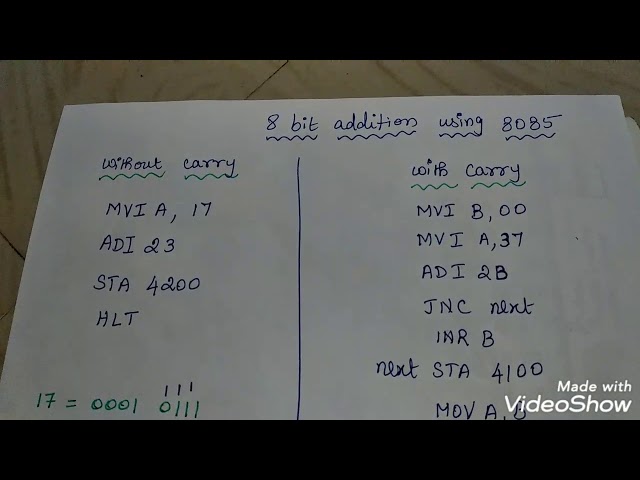 8 bit addition using 8085
without carry
MVI A, 17
ADI 23
STA 4200
HLT
111
17 = 0001 0111
with carry
MVI B, 00
MVI A, 37
ADI 2B
JNC next
INR B
next STA 4100
MOV A, B
Made with
VideoShow